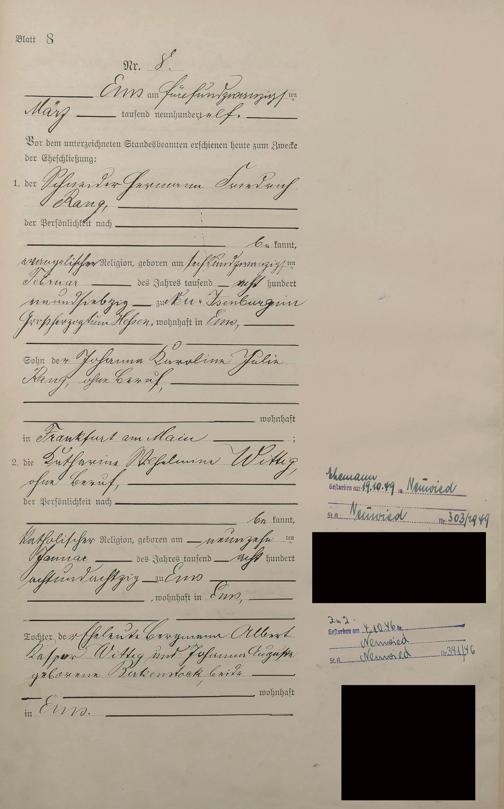 Blatt 8
Nr. 8.
Ems am fünfundzwanzigs ten
März tausend neunhundert elf.
Vor dem unterzeichneten Standesbeamten erschienen heute zum Zwecke
der Eheschließung:
1. der Schneider Hermann Friedrich
Rang,
der Persönlichkeit nach
be kannt,
evangelischer Religion, geboren am sechsundzwanzigs ten
Februar des Jahres tausend acht hundert
neunundsiebzig zu Neu-Isenburg im
Großherzogtum Hessen, wohnhaft in Ems,
Sohn der Johanna Karoline Julie
Rang, ohne Beruf,
wohnhaft
in Frankfurt am Main ;
2. die Katharina Wilhelmine Wittig,
ohne Beruf,
der Persönlichkeit nach
be kannt,
katholischer Religion, geboren am neunzehn ten
Januar des Jahres tausend acht hundert
achtundachtzig zu Ems
, wohnhaft in Ems,
Tochter der Eheleute Bergmann Albert
Kaspar Wittig und Johanna Auguste
geborene Birkenstock, beide
wohnhaft
in Ems.
Ehemann
Gestorben am 19.10.49 in Neuwied
St.A. Neuwied Nr. 303/1949
Gestorben am
Neuwied
St.A. Neuwied Nr. 391/46